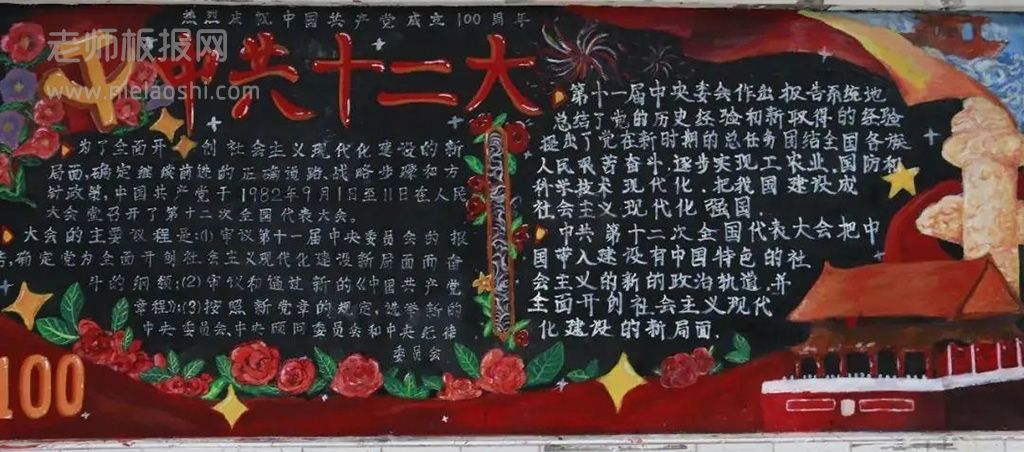 热烈庆祝中国共产党成立100周年
老师板报网
www.mielaoshi.com
中共十二大
为了全面开创社会主义现代化建设的新
局面,确定继续前进的正确道路、战略步骤和方
针政策,中国共产党于1982年9月1日至11日在人民
大会堂召开了第十二次全国代表大会。
大会的主要议程是:(1)审议第十一届中央委员会的报
告,确定党为全面开创社会主义现代化建设新局面而奋
斗的纲领;(2)审议和通过新的《中国共产党
章程》;(3)按照新党章的规定,选举新的
中央委员会、中央顾问委员会和中央纪律
委员会
100
第十一届中央委员会作出报告系统地
总结了党的历史经验和新取得的经验
提出了党在新时期的总任务团结全国各族
人民艰苦奋斗,逐步实现工农业、国防和
科学技术现代化,把我国建设成
社会主义现代化强国。
中共第十二次全国代表大会把中
国带入建设有中国特色的社
会主义的新的政治轨道,并
全面开创社会主义现代
化建设的新局面.